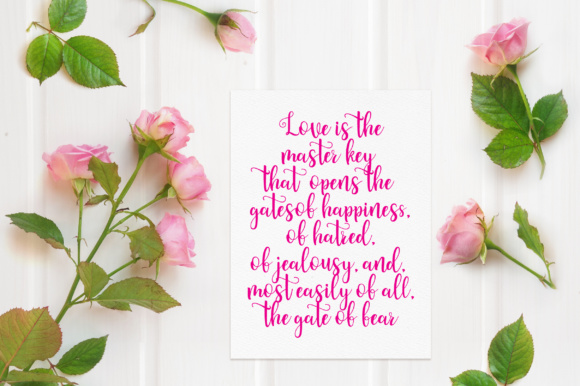 Love is the
master key
that opens the
gatesof happiness,
of hatred,
of jealousy, and,
most easily of all,
the gate of fear